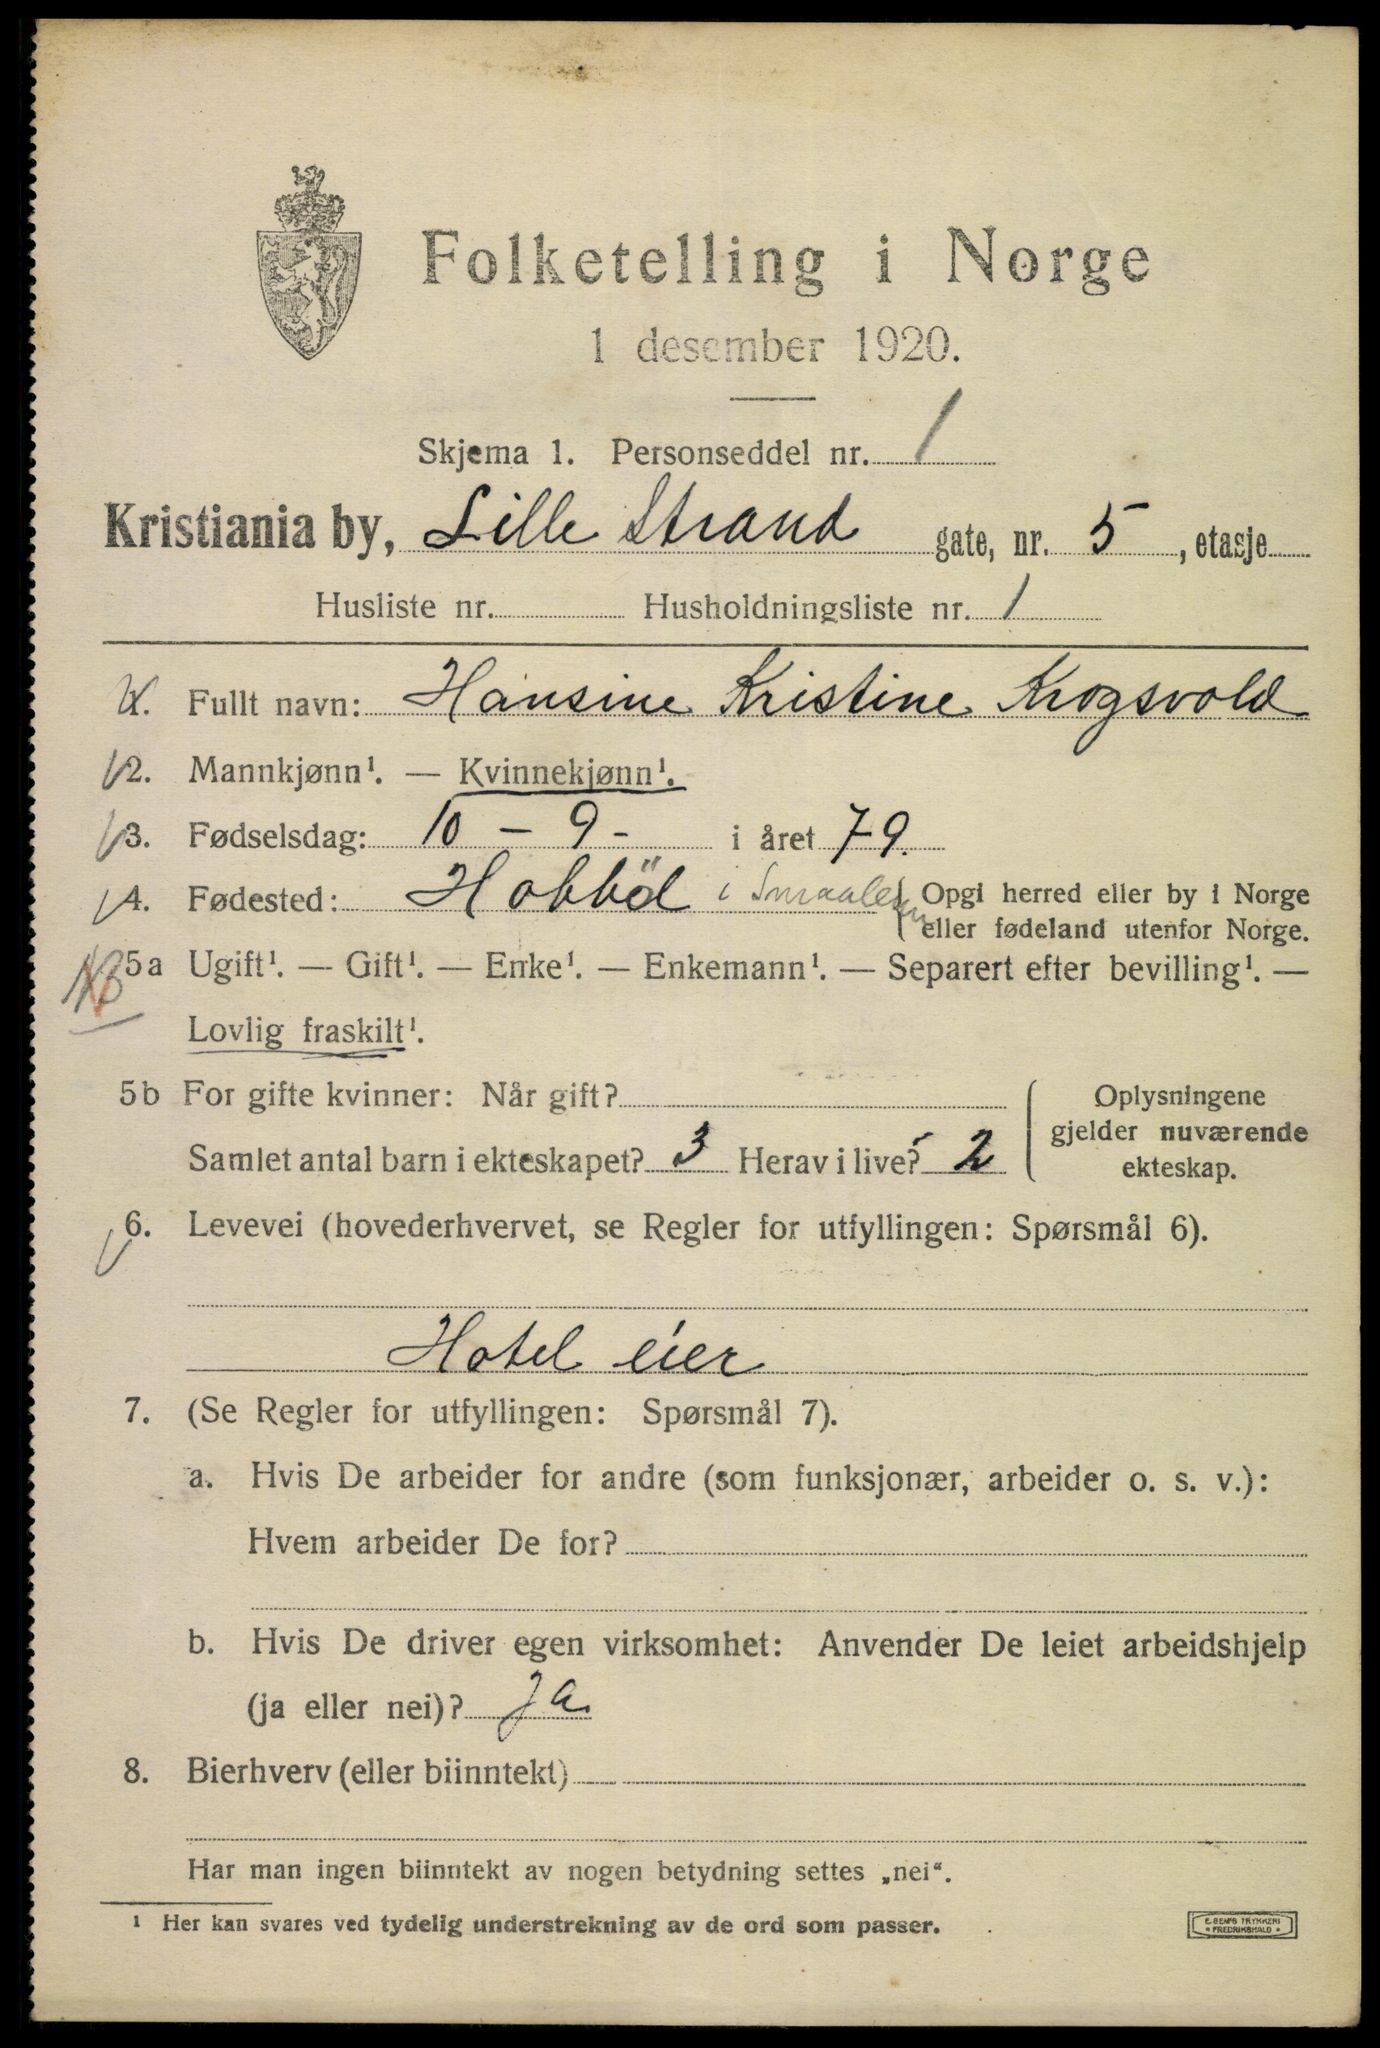 Folketelling i Norge
1 desember 1920.
Skjema 1. Personseddel nr. 1
Kristiania by, Lille Strand gate, nr. 5, etasje
Husliste nr. Husholdningsliste nr. 1
1. Fullt navn: Hansine Kristine Krogsvold
2. Mannkjønn¹. — Kvinnekjønn¹.
3. Fødselsdag: 10 - 9 - i året 79.
4. Fødested: Hobböl i Smaalenen { Opgi herred eller by i Norge
eller fødeland utenfor Norge.
5a Ugift¹. — Gift¹. — Enke¹. — Enkemann¹. — Separert efter bevilling¹. —
Lovlig fraskilt¹.
5b For gifte kvinner: Når gift?
Samlet antal barn i ekteskapet? 3 Herav i live? 2
Oplysningene
gjelder nuværende
ekteskap.
6. Levevei (hovederhvervet, se Regler for utfyllingen: Spørsmål 6).
Hotel eier
7. (Se Regler for utfyllingen: Spørsmål 7).
a. Hvis De arbeider for andre (som funksjonær, arbeider o. s. v.):
Hvem arbeider De for?
b. Hvis De driver egen virksomhet: Anvender De leiet arbeidshjelp
(ja eller nei)? Ja
8. Bierhverv (eller biinntekt)
Har man ingen biinntekt av nogen betydning settes „nei“.
¹ Her kan svares ved tydelig understrekning av de ord som passer.
E. SEM'S TRYKKERI
* FREDRIKSHALD *